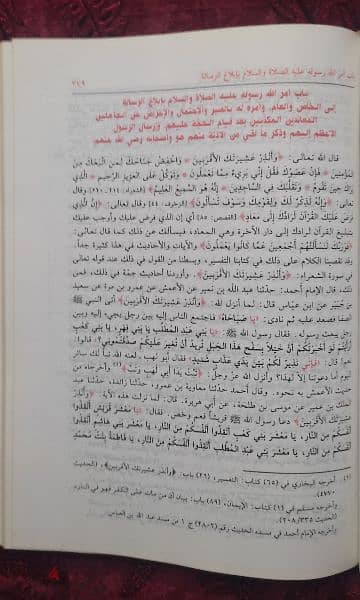 باب أمر الله رسوله عليه الصلاة والسلام بإبلاغ الرسالة
باب أمر الله رسوله عليه الصلاة والسلام بإبلاغ الرسالة
إلى الخاص والعام، وأمره له بالصبر والاحتمال والإعراض عن الجاهلين
المعاندين المكذبين بعد قيام الحجة عليهم وإرسال الرسول
الأعظم إليهم وذكر ما لقي من الأذية منهم هو وأصحابه رضي الله عنهم
قال الله تعالى: ﴿وأنذر عشيرتك الأقربين﴾ ﴿واخفض جناحك لمن اتبعك من
المؤمنين﴾ ﴿فإن عصوك فقل إني بريء مما تعملون﴾ ﴿وتوكل على العزيز الرحيم﴾ ﴿الذي
يراك حين تقوم﴾ ﴿وتقلبك في الساجدين﴾ ﴿إنه هو السميع العليم﴾ وقال
تعالى: ﴿وإنه لذكر لك ولقومك وسوف تسألون﴾ وقال تعالى: ﴿إن الذي
فرض عليك القرآن لرادك إلى معاد﴾ أي إن الذي فرض عليك وأوجب عليك
تبليغ القرآن لرادك إلى دار الآخرة وهي المعاد، فيسألك عن ذلك كما قال تعالى:
﴿فوربك لنسألنهم أجمعين عما كانوا يعملون﴾ والآيات والأحاديث في هذا كثيرة جداً.
وقد تقصينا الكلام على ذلك في كتابنا التفسير، وبسطنا من القول في ذلك عند قوله تعالى
في سورة الشعراء: ﴿وأنذر عشيرتك الأقربين﴾. وأوردنا أحاديث جمة في ذلك، فمن
ذلك، قال الإمام أحمد: حدثنا عبد الله بن نمير عن الأعمش عن عمرو بن مرة عن سعيد
بن جبير عن ابن عباس قال: لما أنزل الله: ﴿وأنذر عشيرتك الأقربين﴾ أتى النبي ﷺ
الصفا فصعد عليه ثم نادى: يا صباحاه فاجتمع الناس إليه بين رجل يجيء إليه وبين
رجل يبعث رسوله. فقال رسول الله ﷺ: يا بني عبد المطلب يا بني فهر، يا بني كعب
أرأيتم لو أخبرتكم أن خيلاً بسفح هذا الجبل تريد أن تغير عليكم صدقتموني؟ قالوا:
نعم! قال: فإني نذير لكم بين يدي عذاب شديد فقال أبو لهب، لعنه الله تباً لك سائر
اليوم أما دعوتنا إلا لهذا؟ وأنزل الله عز وجل: ﴿تبت يدا أبي لهب وتب﴾ وأخرجاه من
حديث الأعمش به نحوه. وقال أحمد حدثنا معاوية بن عمرو، حدثنا زائدة، حدثنا عبد
الملك بن عمير عن موسى بن طلحة، عن أبي هريرة. قال: لما نزلت هذه الآية: ﴿وأنذر
عشيرتك الأقربين﴾ دعا رسول الله ﷺ قريشاً فعم وخص. فقال: يا معشر قريش أنقذوا
أنفسكم من النار، يا معشر بني كعب أنقذوا أنفسكم من النار، يا معشر بني هاشم أنقذوا
أنفسكم من النار، يا معشر بني عبد المطلب أنقذوا أنفسكم من النار، يا فاطمة بنت محمد
أخرجه البخاري في (٦٥) كتاب: التفسير، (٢٦) باب: ﴿وأنذر عشيرتك الأقربين﴾، (الحديث
٤٧٧٠).
وأخرجه مسلم في (١) كتاب: الإيمان، (٨٩) باب: بيان أن من مات على الكفر فهو في النار،
(الحديث ٣٥٥/٢٠٨).
وأخرجه الإمام أحمد في مسنده الحديث رقم (٢٨٠٢) ج ١ من مسند عبد الله بن العباس.